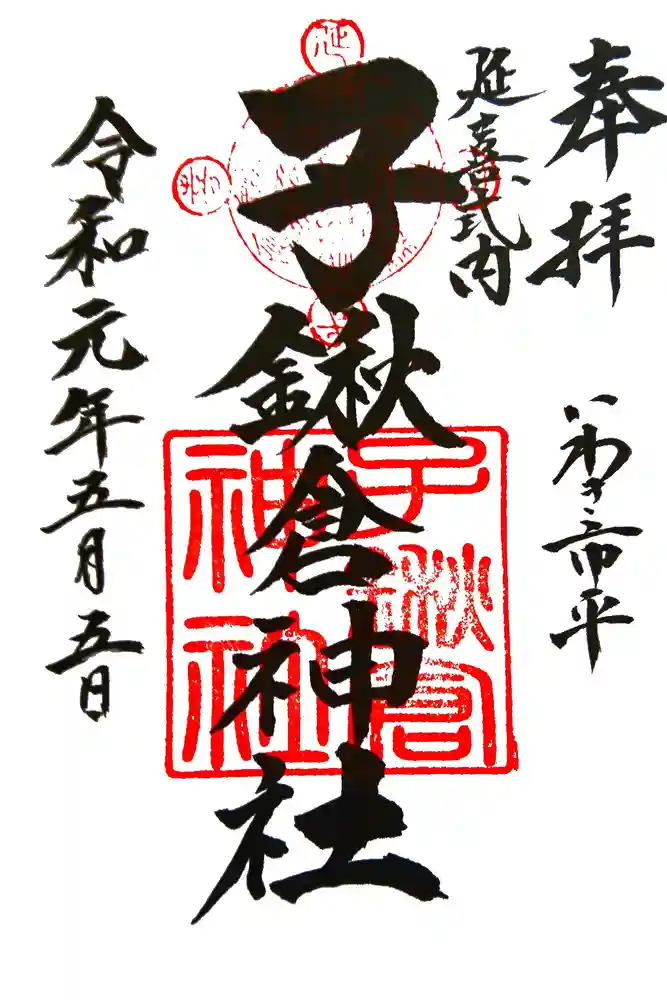 奉拝
いわき市平
延喜式内
子鍬倉神社
令和元年五月五日
子鍬倉神社